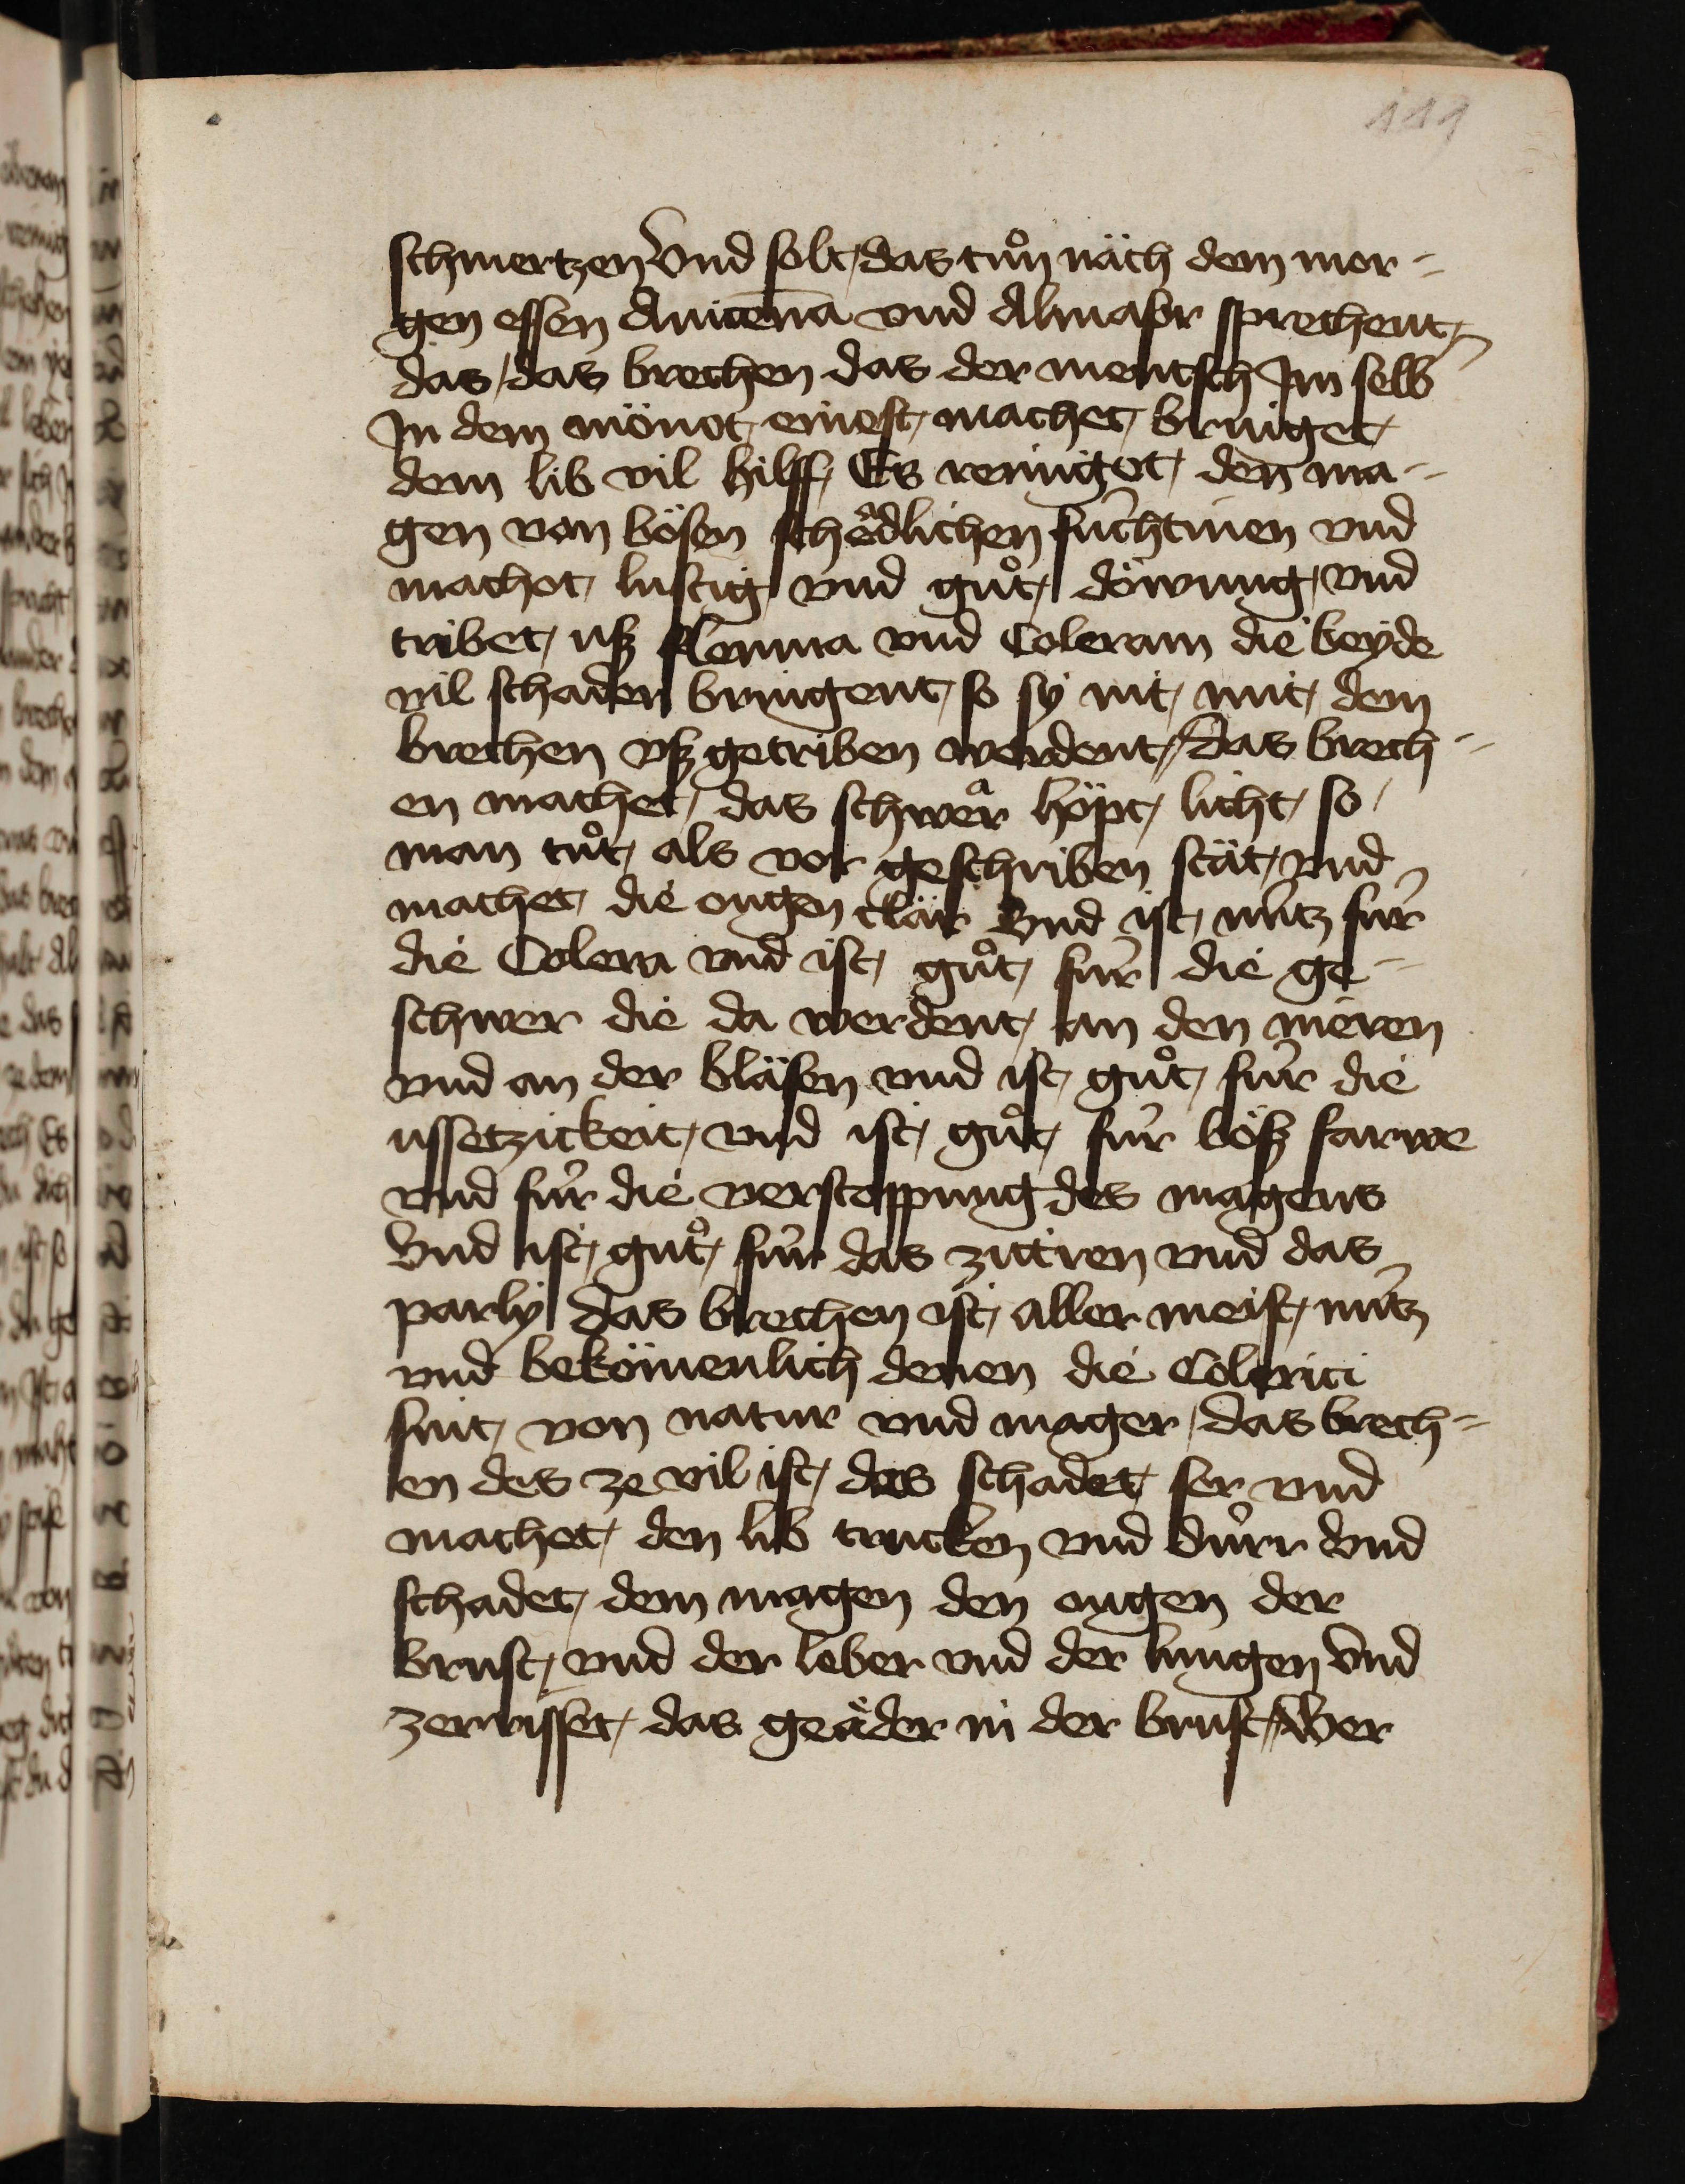 111
schmertzen Vnd solt das tůn näch dem mor-
gen essen Auicēna vnd Almasor sprechent
das das brechen das der mentsch Jm selb
Jn dem mönot einest machet bringet
dem lib vil hilff Es reiniget den ma-
gen von bösen schedlichen fůchtinen vnd
machet lustig vnd gůt döwung vnd
tribet uß flemma vnd Coleram die beyde
vil schaden bringent so sy nit mit dem
brechen vß getriben werdent das brech-
en machet das schwer höpt licht so
man tůt als vor geschriben stät vnd
machet die ougen clär Vnd ist nütz für
die Colera vnd ist gůt für die ge-
schwer die da werdent an den nieren
vnd an der bläsen vnd ist gůt für die
ussetzickeit vnd ist gůt für böß farwe
vnd für die verstoppung des magens
Vnd ist gůt für das zittren vnd das
parly das brechen ist aller meist nütz
vnd bekömenlich denen die Colerici
sint von natur vnd mager das brech-
en des ze vil ist das schadet ser vnd
machet den lib trucken vnd dürr Vnd
schadet dem magen den ougen der
brust vnd der leber vnd der lungen Vnd
zerrisset das geäder in der brust Aber